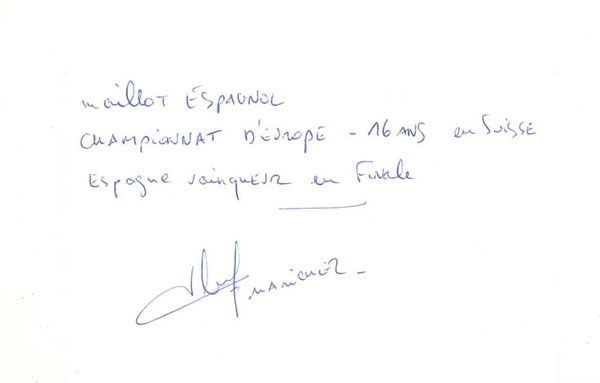 maillot ESPAGNOL
CHAMPIONNAT D'EUROPE - 16 ANS en SUISSE
ESPAGNE vainqueur en Finale